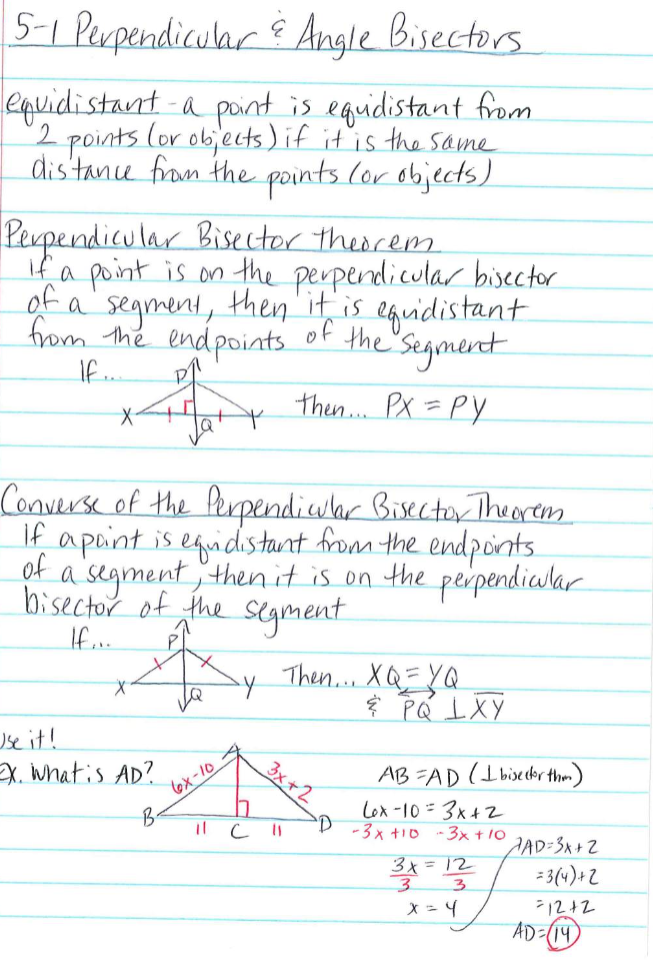 5-1 Perpendicular & Angle Bisectors
equidistant - a point is equidistant from
2 points (or objects) if it is the same
distance from the points (or objects)
Perpendicular Bisector theorem
If a point is on the perpendicular bisector
of a segment, then it is equidistant
from the endpoints of the segment
If...
P
X
Q
Y
then... PX = PY
Converse of the Perpendicular Bisector Theorem
If a point is equidistant from the endpoints
of a segment, then it is on the perpendicular
bisector of the segment
If...
P
X
Q
Y
Then... XQ = YQ
& PQ ⊥ XY
Use it!
Ex. What is AD?
A
6x-10
3x+2
B
C
D
AB = AD (⊥ bisector thm)
6x-10 = 3x+2
-3x +10 -3x +10
3x = 12
3 3
x = 4
AD=3x+2
=3(4)+2
=12+2
AD=14